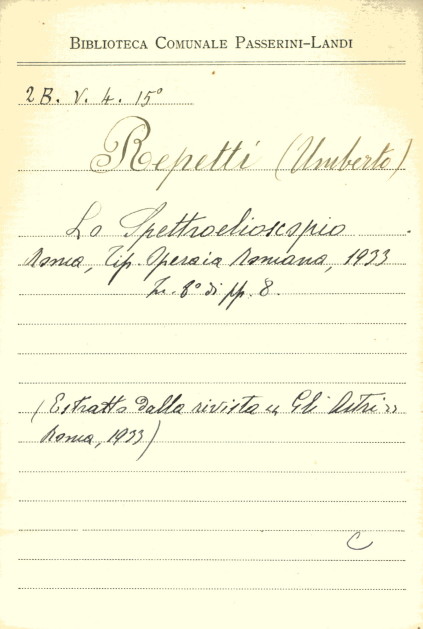 BIBLIOTECA COMUNALE PASSERINI-LANDI
2B. V. 4. 15º
Repetti (Umberto)
Lo Spettroelioscopio
Roma, Tip. Operaia Romana, 1933
In. 8º di pp. 8.
(Estratto dalla rivista « Gli Astri »
Roma, 1933)
C